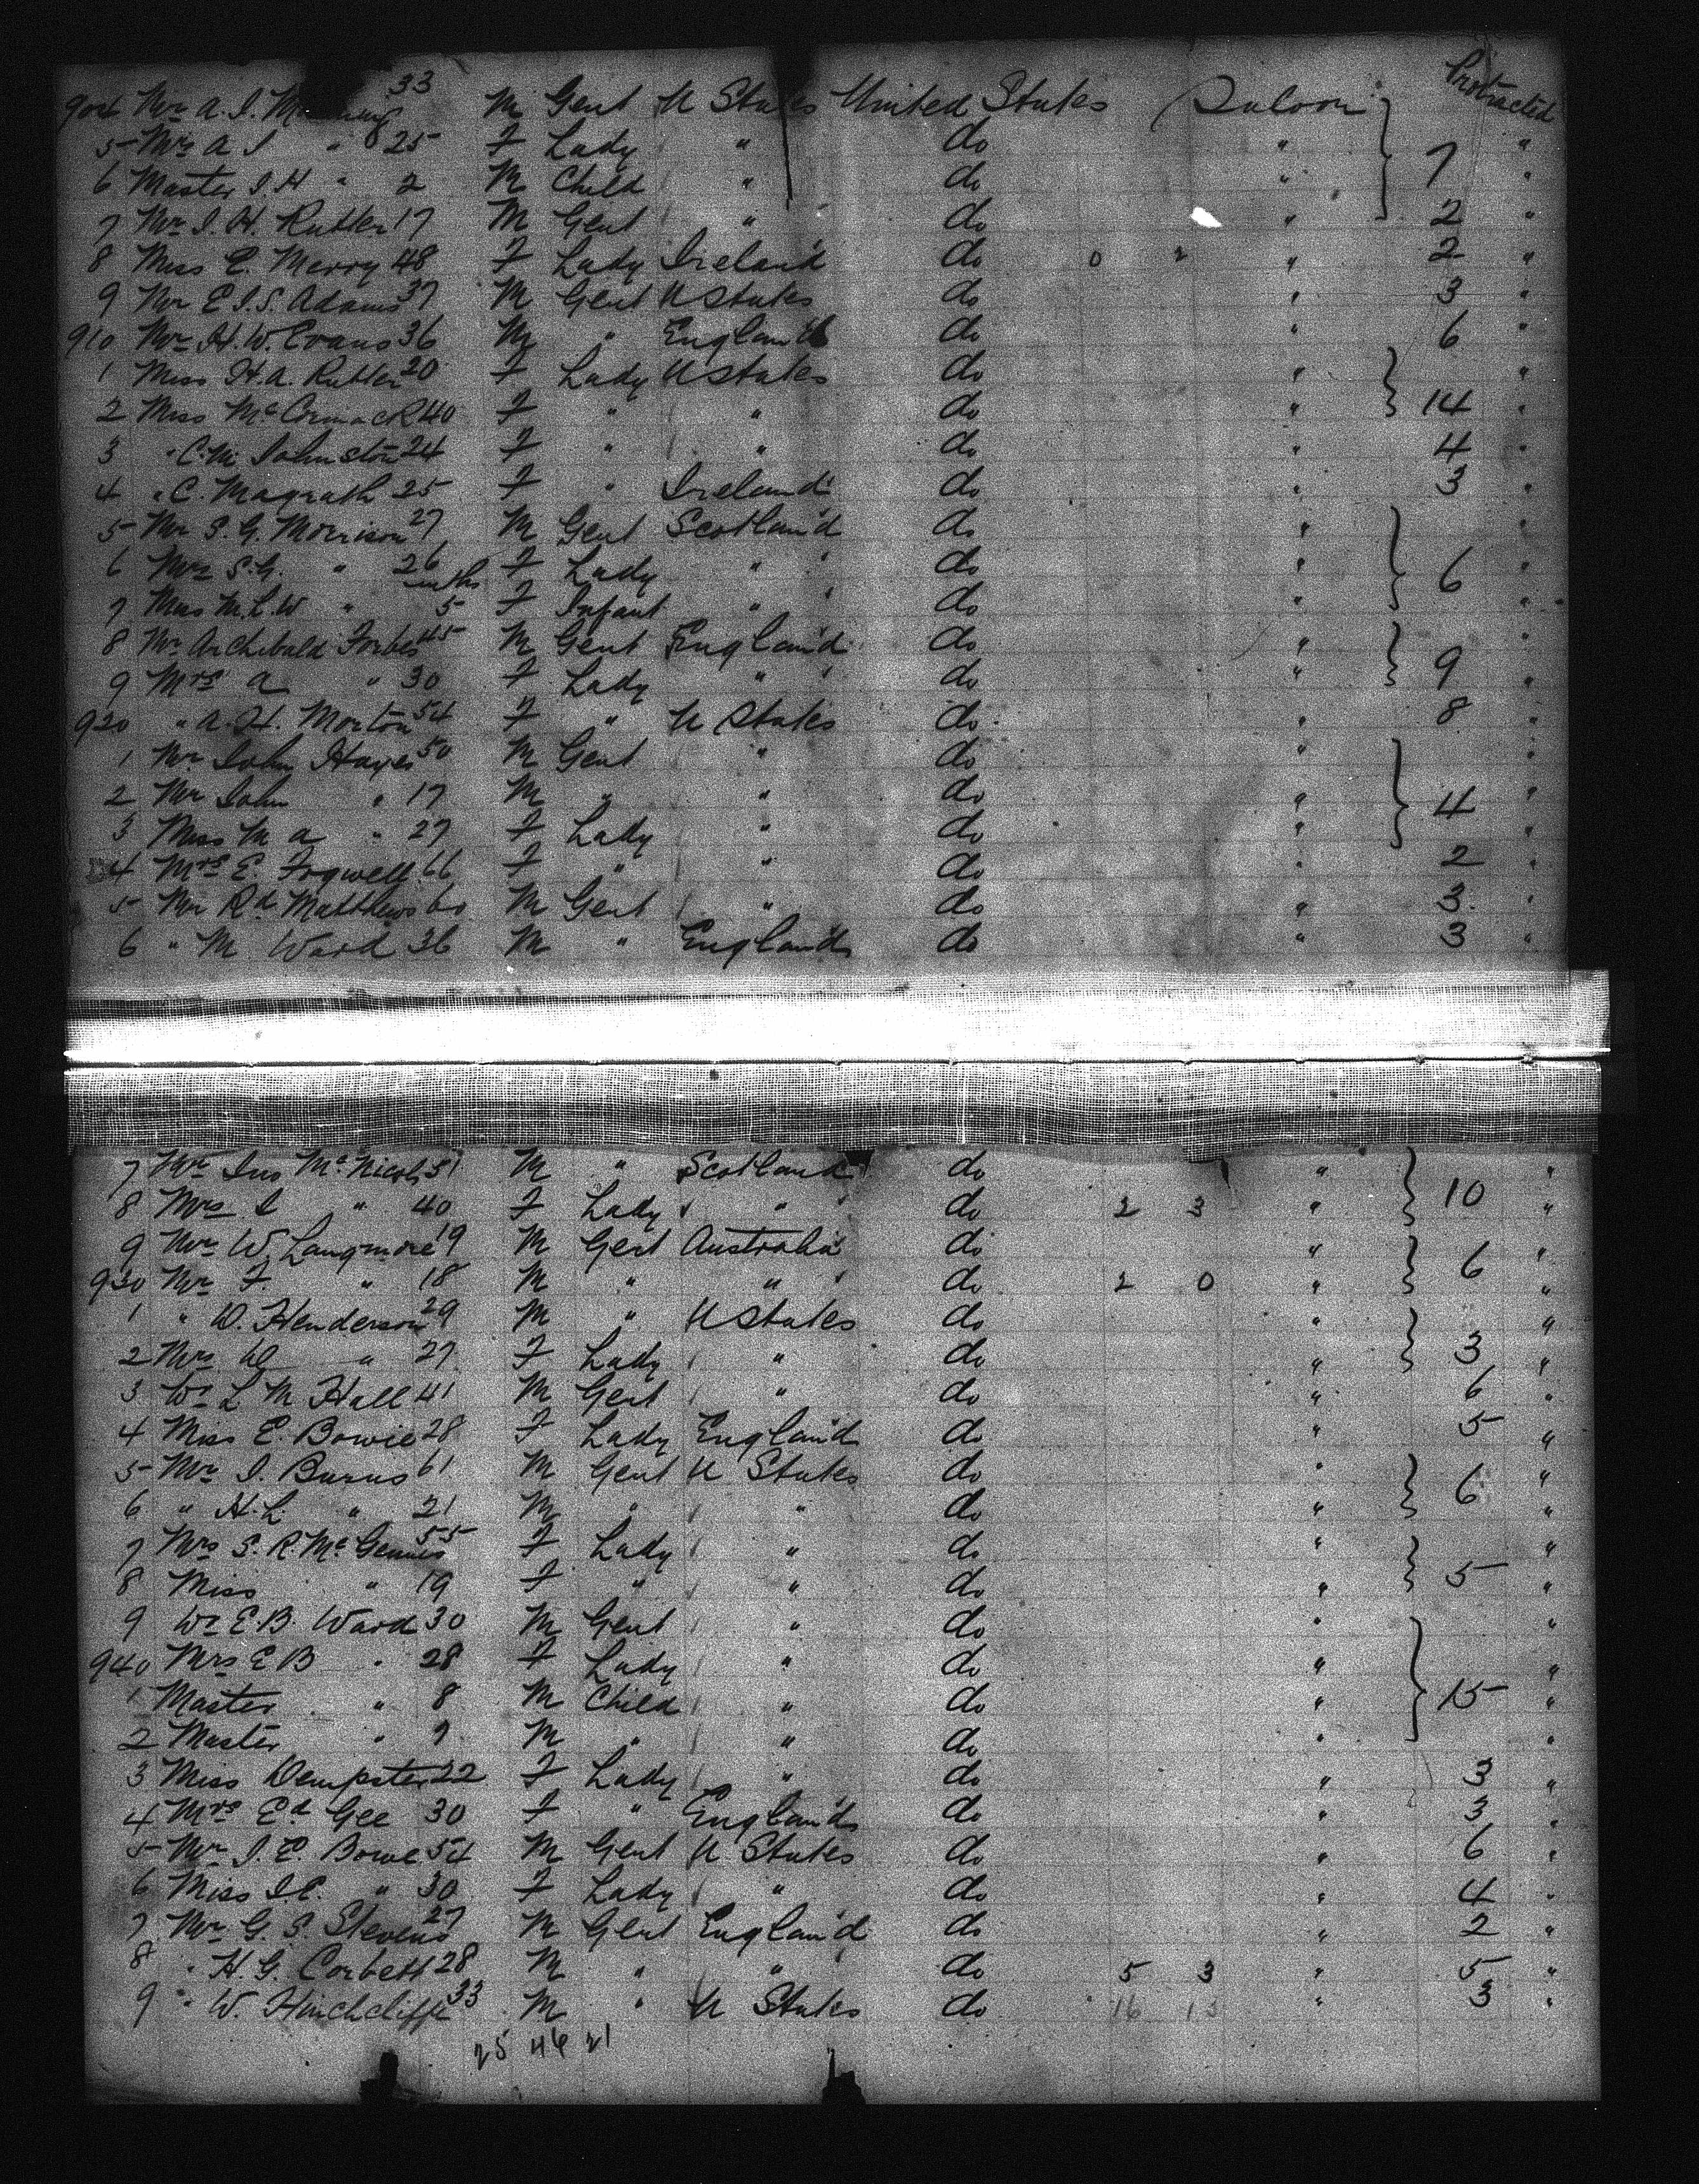 904 Mr A. I. M 33 M Gent U States United States Saloon Protracted
5 Mrs A I " 25 F Lady " do " 7 "
6 Master I. H " 2 M Child " do " "
7 Mr I. H. Rutter 17 M Gent " do " 2 "
8 Miss E. Merry 48 F Lady Ireland do 0 2 " 2 "
9 Mr E. I. S. Adams 37 M Gent U States do " 3 "
910 Mr H. W. Evans 36 M " England do " 6 "
1 Miss H. A. Rutter 20 F Lady U States do " "
2 Miss McCormack 40 F " " do " 14 "
3 " C. M. Johnston 24 F " " do " 4 "
4 " C. Magrath 25 F " Ireland do " 3 "
5 Mr S. G. Morrison 27 M Gent Scotland do " "
6 Mrs S. G. " 26 F Lady " do " 6 "
7 Miss M. L. W " 5 mths F Infant " do " "
8 Mr Archibald Forbes 45 M Gent England do " "
9 Mrs A " 30 F Lady " do " 9 "
920 " A. H. Morton 54 F " U States do " 8 "
1 Mr John Hayes 50 M Gent " do " "
2 Mr John " 17 M " " do " 4 "
3 Miss M A " 27 F Lady " do " "
4 Mrs E. Fogwell 66 F " " do " 2 "
5 Mr Rd Matthews 60 M Gent " do " 3 "
6 " M Ward 36 M " England do " 3 "
7 Mr Jno McNicol 51 M " Scotland do " "
8 Mrs J " 40 F Lady " do 2 3 " 10 "
9 Mr W. Langmore 19 M Gent Australia do " 6 "
930 Mr F. " 18 M " " do 2 0 " "
1 " D. Henderson 29 M " U States do " "
2 Mrs D " 27 F Lady " do " 3 "
3 Mr L M Hall 41 M Gent " do " 6 "
4 Miss E. Bowie 28 F Lady England do " 5 "
5 Mr I. Burns 61 M Gent U States do " "
6 " H. L. " 21 M " " do " 6 "
7 Mrs S. R. McGennis 55 F Lady " do " "
8 Miss " 19 F " " do " 5 "
9 Mr E. B. Ward 30 M Gent " do " "
940 Mrs E B " 28 F Lady " do " "
1 Master " 8 M Child " do " 15 "
2 Master " 7 M " " do " "
3 Miss Dempster 22 F Lady " do " 3 "
4 Mrs Ed Gee 30 F " England do " 3 "
5 Mr I. E. Bowe 54 M Gent U States do " 6 "
6 Miss I E. " 30 F Lady " do " 4 "
7 Mr G. S. Stevens 27 M Gent England do " 2 "
8 " H. G. Corbett 28 M " " do 5 3 " 5 "
9 " W. Hinchcliffe 33 M " U States do 16 13 " 3 "
25 46 21